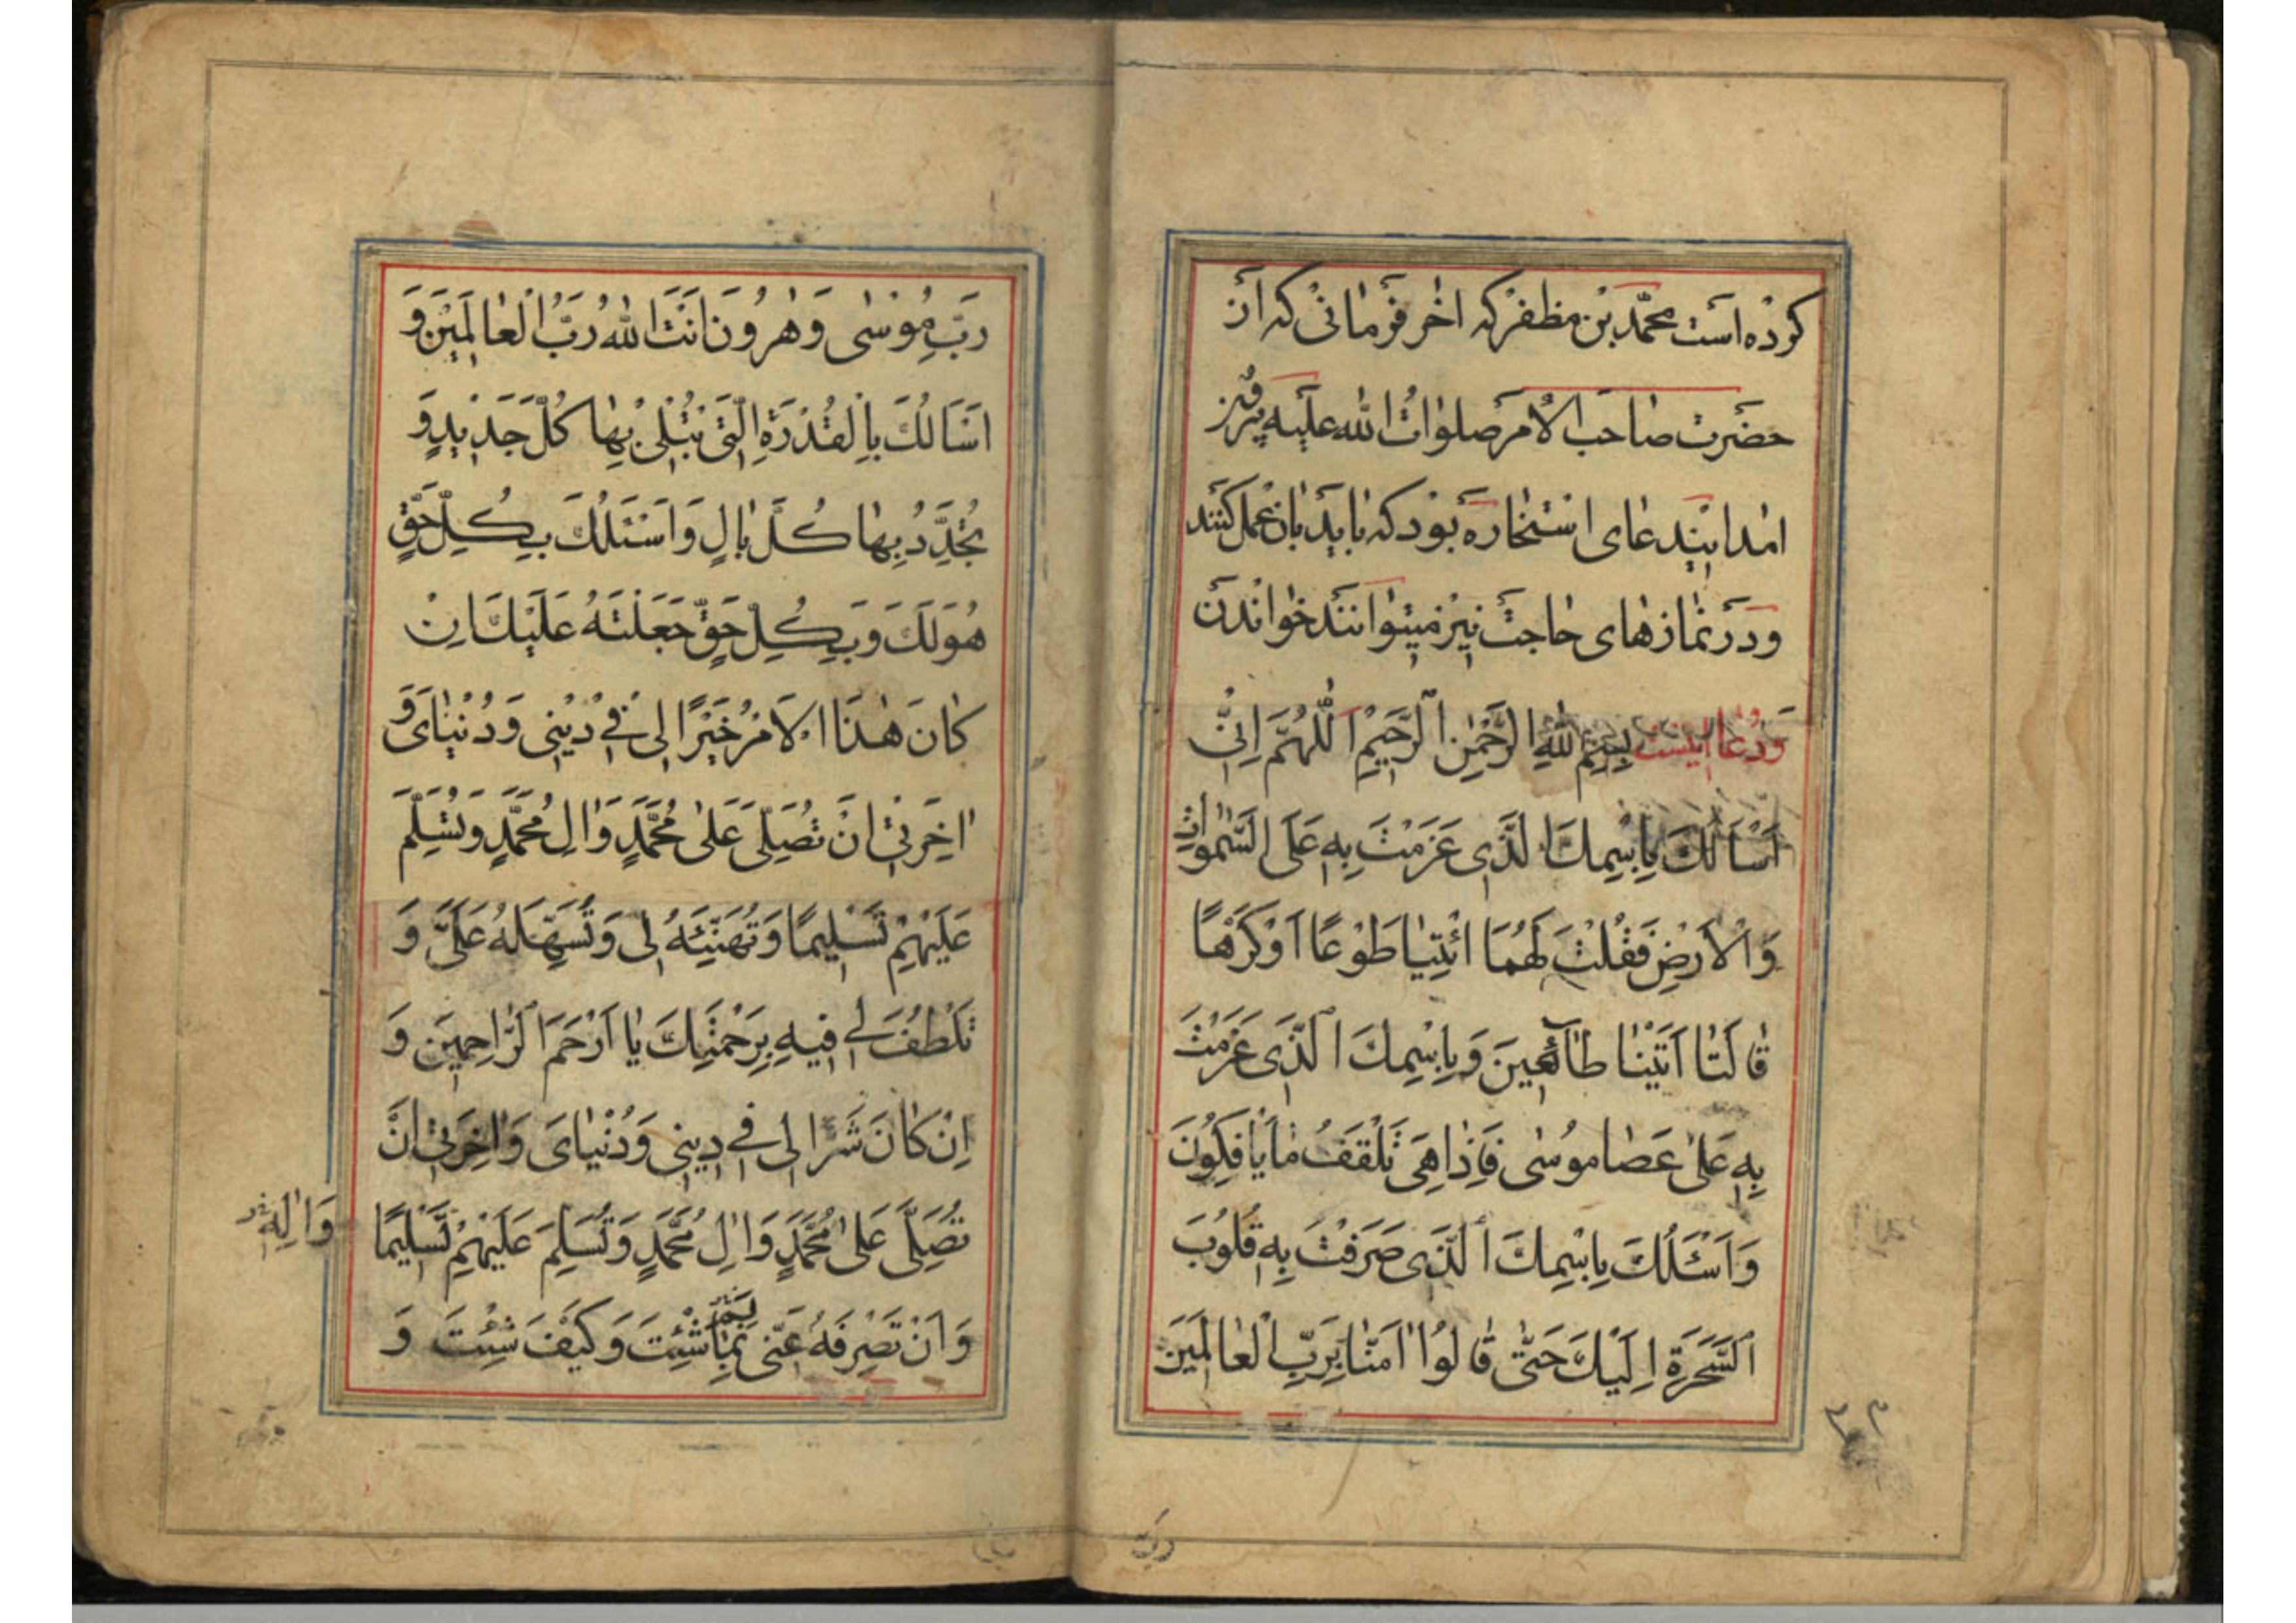 كرده است محمّد بن مظفر كه اخر فرمانى كه از
حضرت صاحب الامر صلوات الله عليه بيرون
امد اين دعاى استخاره بود كه بايد بان عمل كنند
و در نمازهاى حاجت نيز ميتوانند خواندن
و دعا اينست بِسْمِ اللهِ الرَّحْمٰنِ الرَّحِيْمِ اَللّٰهُمَّ اِنِّى
اَسْاَلُكَ بِاسْمِكَ الَّذِى عَزَمْتَ بِهِ عَلَى السَّمٰوَاتِ
وَالْاَرْضِ فَقُلْتَ لَهُمَا ائْتِيٰا طَوْعًا اَوْ كَرْهًا
قٰالَتٰا اَتَيْنٰا طٰائِعِينَ وَبِاسْمِكَ الَّذِى عَزَمْتَ
بِهِ عَلىٰ عَصٰا مُوسٰى فَاِذٰا هِىَ تَلْقَفُ مٰا يَاْفِكُونَ
وَاَسْئَلُكَ بِاسْمِكَ الَّذِى صَرَفْتَ بِهِ قُلُوبَ
السَّحَرَةِ اِلَيْكَ حَتّٰى قٰالُوا اٰمَنّٰا بِرَبِّ الْعٰالَمِينَ
رب
رَبِّ مُوْسٰى وَهٰرُونَ اَنْتَ اللهُ رَبُّ الْعٰالَمِيْنَ وَ
اَسَالُكَ بِالْقُدْرَةِ الَّتِى تُبْلِى بِهٰا كُلَّ جَدِيْدٍ وَ
تُجَدِّدُ بِهٰا كُلَّ بٰالٍ وَاَسْئَلُكَ بِكُلِّ حَقٍّ
هُوَ لَكَ وَبِكُلِّ حَقٍّ جَعَلْتَهُ عَلَيْكَ اِنْ
كٰانَ هٰذَا الْاَمْرُ خَيْرًا لِى فِى دِيْنِى وَدُنْيٰاىَ وَ
اٰخِرَتِى اَنْ تُصَلِّىَ عَلىٰ مُحَمَّدٍ وَاٰلِ مُحَمَّدٍ وَتُسَلِّمَ
عَلَيْهِمْ تَسْلِيمًا وَتُهَنِّيَهُ لِى وَتُسَهِّلَهُ عَلَىَّ وَ
تَلْطُفَ لِى فِيهِ بِرَحْمَتِكَ يٰا اَرْحَمَ الرّٰاحِمِينَ وَ
اِنْ كٰانَ شَرًّا لِى فِى دِينِى وَدُنْيٰاىَ وَاٰخِرَتِى اَنْ
تُصَلِّىَ عَلىٰ مُحَمَّدٍ وَاٰلِ مُحَمَّدٍ وَتُسَلِّمَ عَلَيْهِمْ تَسْلِيمًا
وَاٰلِهِ
وَاَنْ تَصْرِفَهُ عَنِّى بِمٰا شِئْتَ وَكَيْفَ شِئْتَ وَ